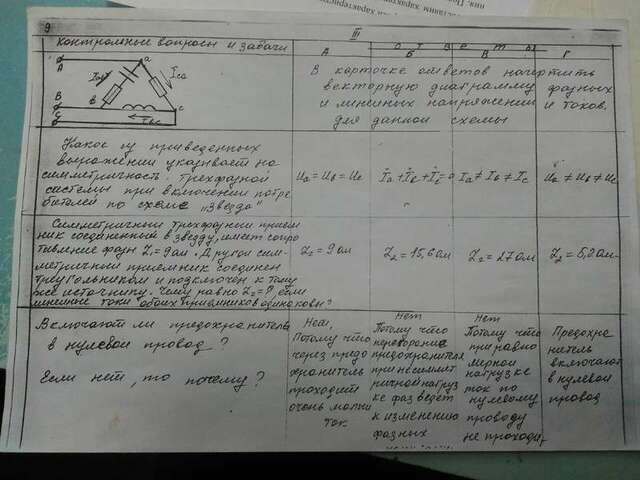 9
III
Контрольные вопросы и задачи
О т в е т ы
А Б В Г
А
В
С
a
в
с
Ica
Iвс
В карточке ответов начертить
векторную диаграмму фазных
и линейных напряжений и токов.
для данной схемы
Какое из приведенных
выражении указивает на
симметричность трехфазной
системы при включении потре
бителей по схеме „Звезда"
Ua = Uв = Uс
İa + İв + İс = 0
Ia ≠ Iв ≠ Iс
Ua ≠ Uв ≠ Uс
Симметричный трехфазный прием
ник соединенный в звезду, имеет сопро
тивление фазы Z1 = 9 ом. Другой сим-
метричный приемник соединен
треугольником и подключен к тому
же источнику. Чему равно Z2 = ?, если
линейные токи обоих приемников одинаковы?
Z2 = 9 ом
Z2 = 15,6 ом
Z2 = 27 ом
Z2 = 5,2 ом
Включают ли предохранитель
в нулевой провод?
Если нет, то почему?
Нет,
Потому что
через предо
хранитель
проходит
очень малый
ток
Нет
Потому что
перегорание
предохранителя
при несиммет
ричной нагруз
ке фаз ведет
к изменению
фазных
Нет
Потому что
при равно
мерной
нагрузке
ток по
нулевому
проводу
не проходит
Предохра
нитель
включают
в нулевой
провод